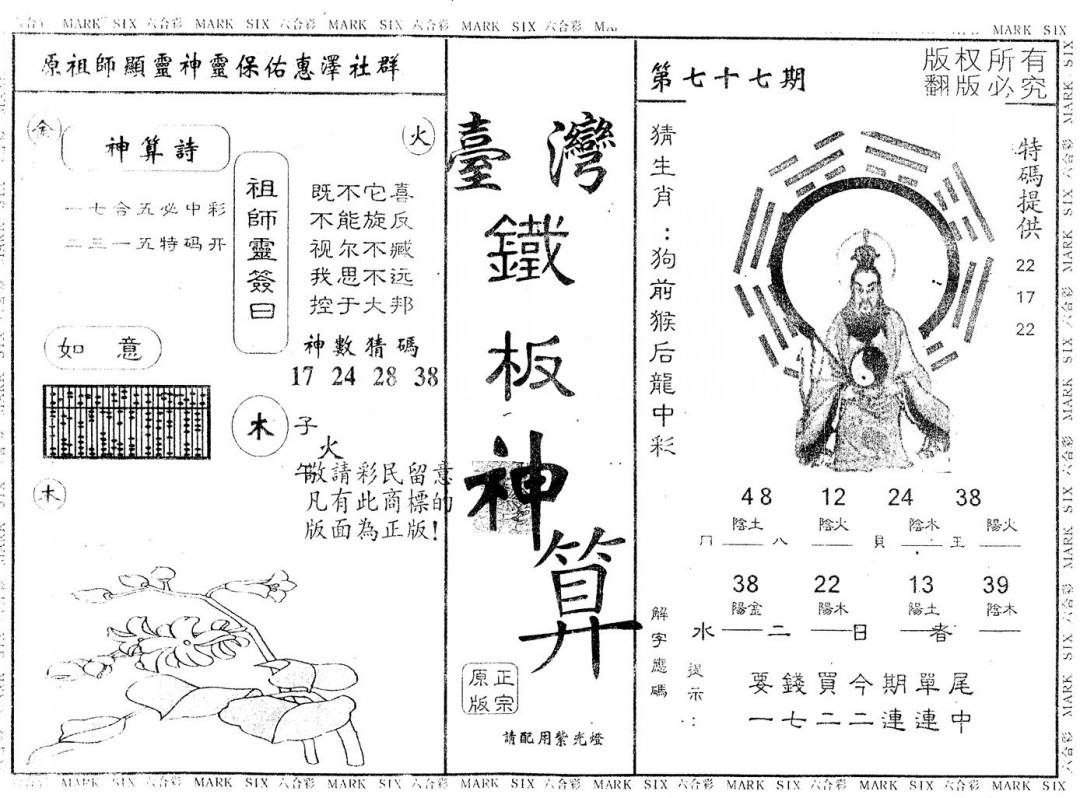 MARK SIX 六合彩 MARK SIX 六合彩 MARK SIX 六合彩 MARK SIX 六合彩
MARK SIX
原祖師顯靈神靈保佑惠澤社群
金
神算詩
火
一七合五必中彩
二三一五特码开
祖師靈簽曰
既不它喜
不能旋反
视尔不臧
我思不远
控于大邦
如意
神數猜碼
17 24 28 38
木
子
火
午
敬請彩民留意
凡有此商標的
版面為正版!
木
臺灣
鐵
板
神
算
正宗
原版
請配用紫光燈
第七十七期
版权所有
翻版必究
猜生肖:狗前猴后龍中彩
特碼提供
22
17
22
48 12 24 38
陰土 陰火 陰木 陽火
冂 八 貝 王
38 22 13 39
陽金 陽木 陽土 陰木
水 二 日 者
解字應碼
提示:
要錢買今期單尾
一七二二連連中
MARK SIX 六合彩 MARK SIX 六合彩 MARK SIX 六合彩 MARK SIX 六合彩 MARK SIX 六合彩 MARK SIX 六合彩 MARK SIX 六合彩 MARK SIX